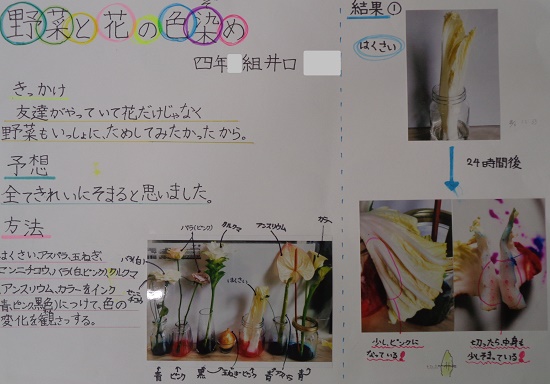 野菜と花の色染め
四年 組井口
きっかけ
友達がやっていて花だけじゃなく
野菜もいっしょに、ためしてみたかったから。
予想
全てきれいにそまると思いました。
方法
はくさい、アスパラ、玉ねぎ、
センニチコウ、バラ(白、ピンク)、クルクマ
アンスリウム、カラーをインク
(青、ピンク、黒色)につけて、色の
変化を観さつする。
バラ(ピンク)
クルクマ
アンスリウム
カラー
バラ(白)
はくさい
青
ピンク
黒
玉ねぎ
ピンク
青
結果①
はくさい
24時間後
少し、ピンクに
なっている
切ったら、中身も
少しそまっている